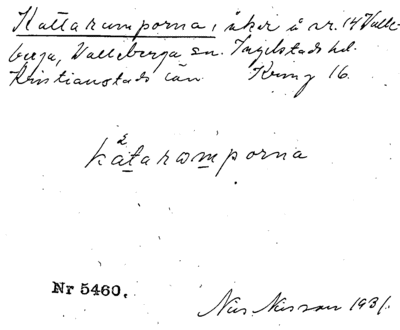 Kattarumporna, åker å nr. 14 Valle-
berga, Valleberga sn. Ingelstads hd.
Kristianstads län Krmg 16.
2
katarωmporna
Nr 5460.
Nils Nilsson 1931.